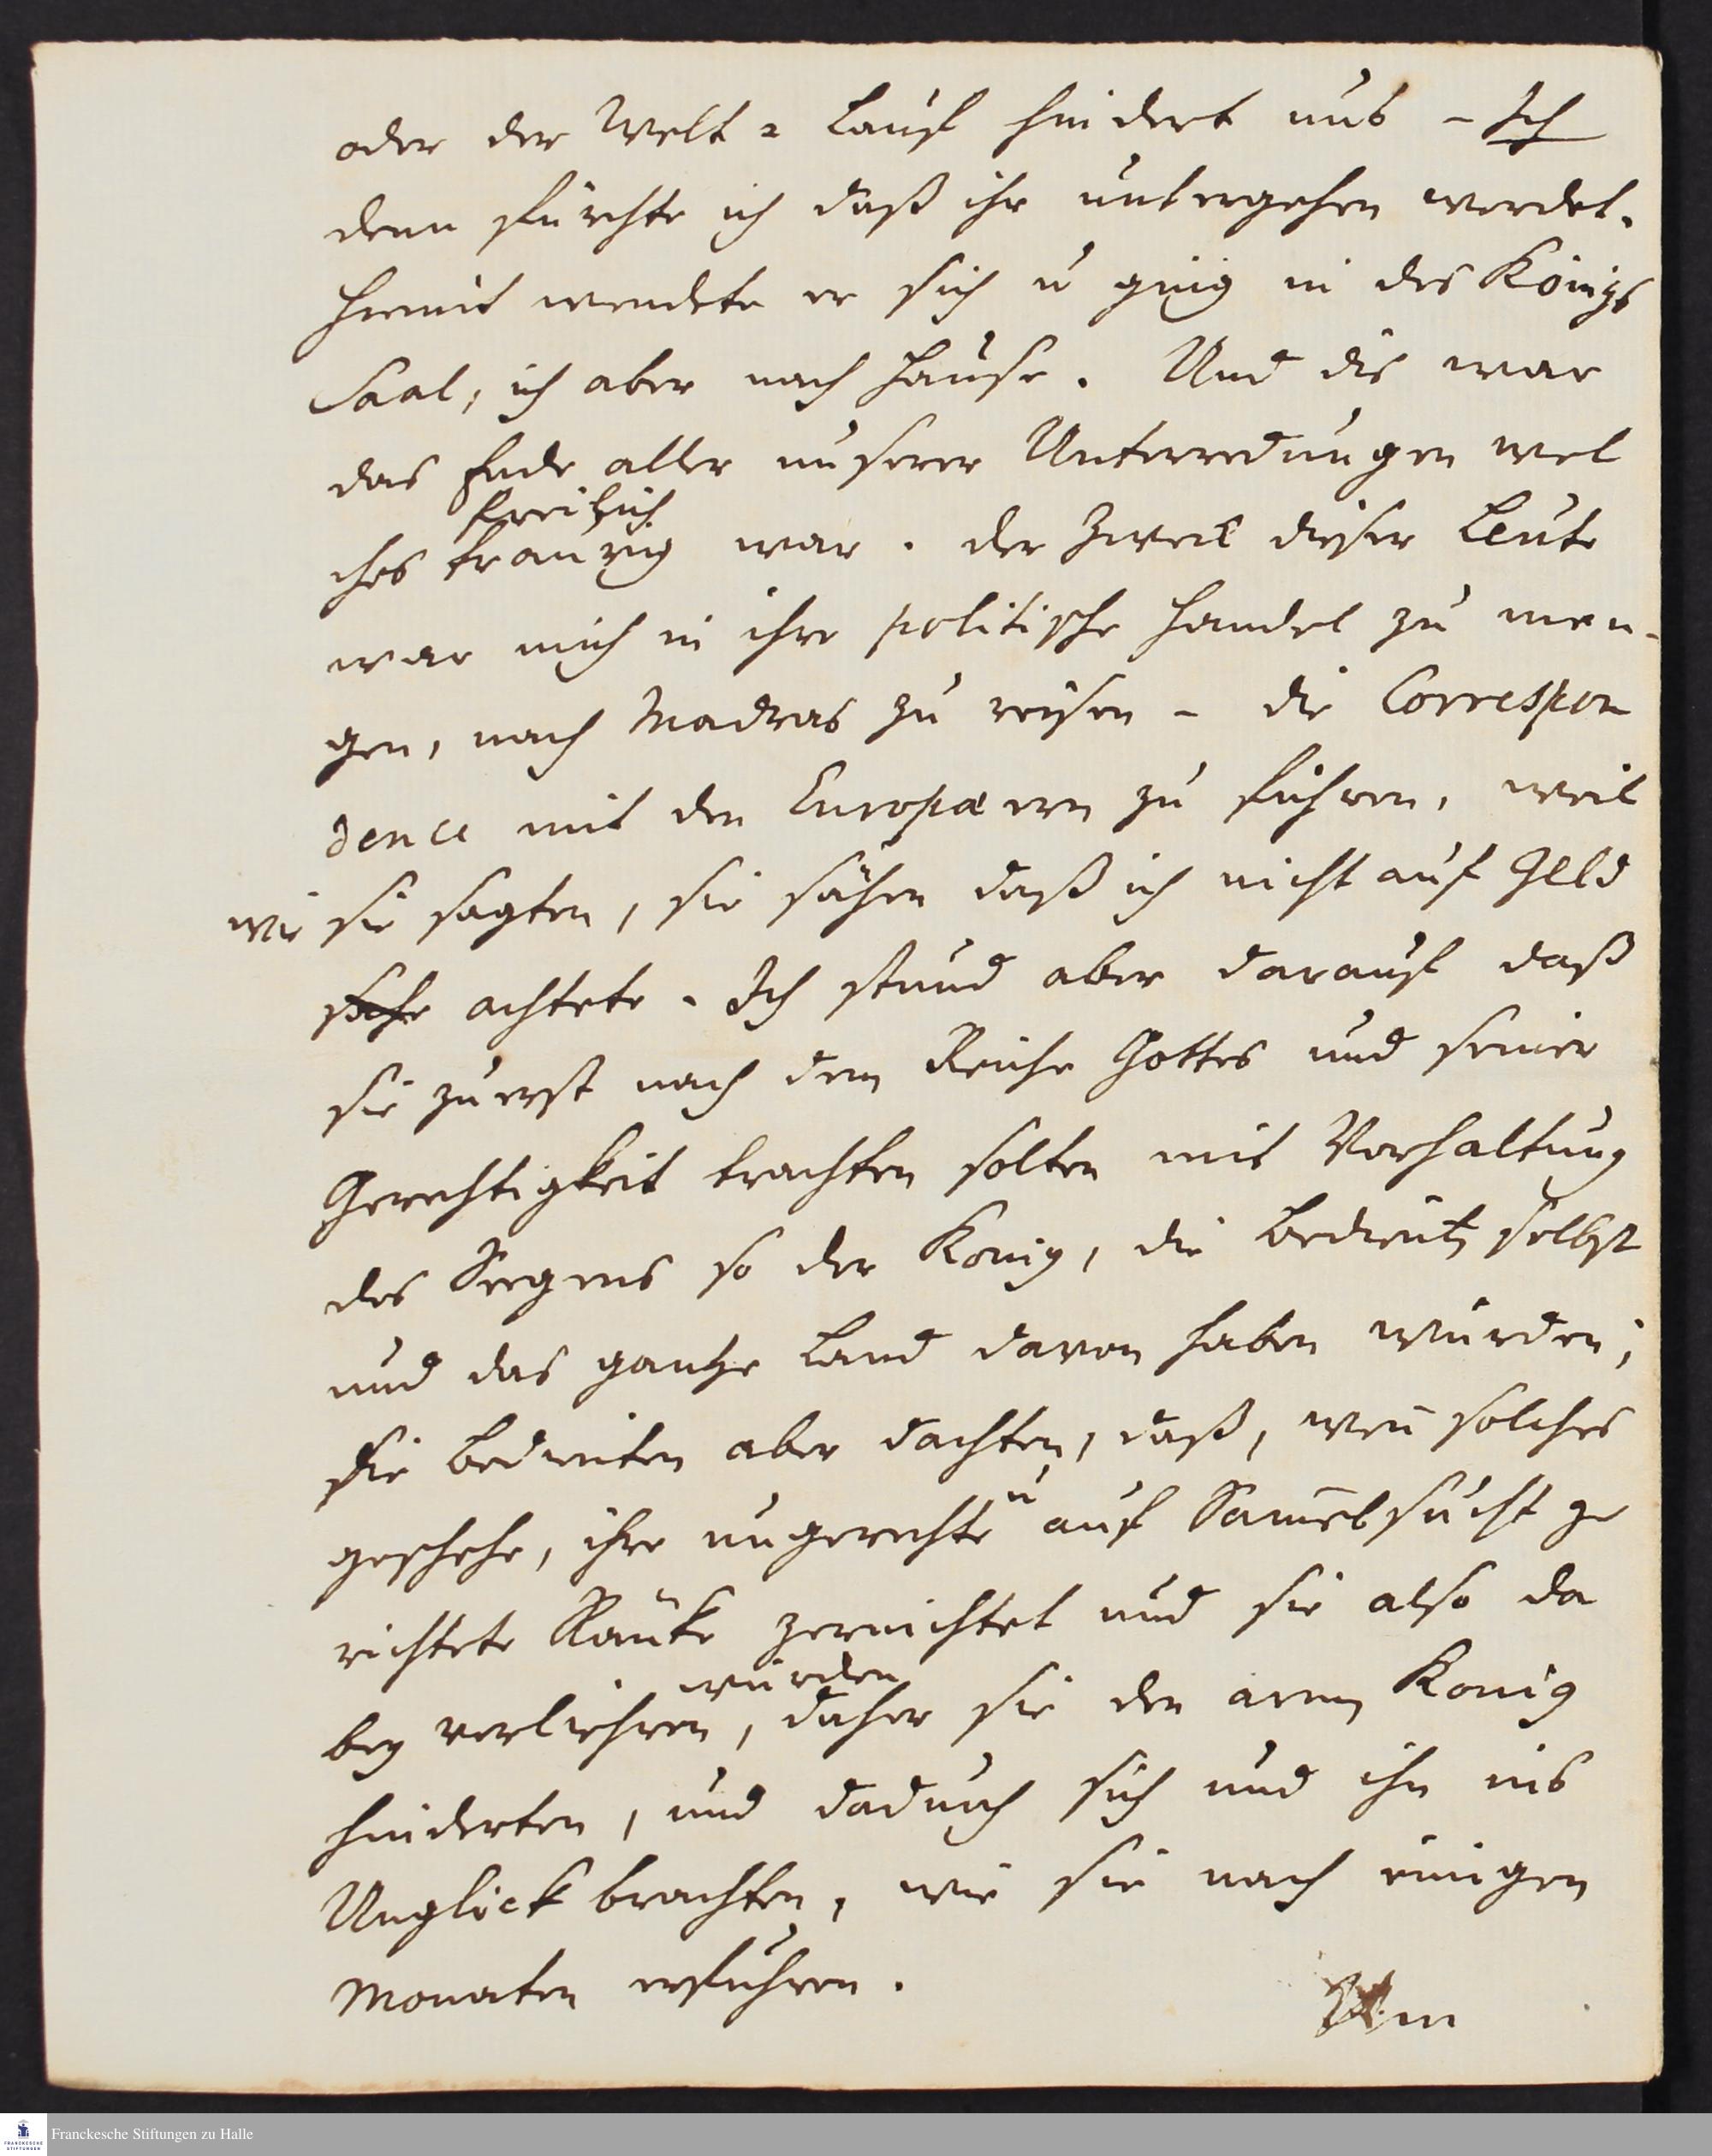 oder der Welt = Lauf hindert uns – Ich
denn fürchte ich daß ihr untergehen werdet.
hiemit wendete er sich u ging in des Königs
Saal, ich aber nach Hause. Und dis war
das Ende aller unserer Unterredungen wel
freilich
ches traurig war. der Zweck dieser Leute
war mich in ihre politische Handel zu men-
gen, nach Madras zu reisen – die Correspon
dence mit den Europæern zu führen, weil
wie sie sagten, sie sähen daß ich nicht auf Geld
sehe achtete. Ich stund aber darauf daß
sie zuerst nach dem Reiche Gottes und seiner
Gerechtigkeit trachten solten mit Vorhaltung
des Seegens so der Konig, die Bedient selbst
und das gantze Land davon haben würden;
die Bedienten aber dachten, daß, weñ solches
u
geschehe, ihre ungerechte auf Sam̃elsucht ge
richtete Ränke zernichtet und sie also da
würden
bey verliehren, daher sie den armen Konig
hinderten, und dadurch sich und ihn ins
Unglück brachten, wie sie nach einigen
Monaten erfuhren.
Am